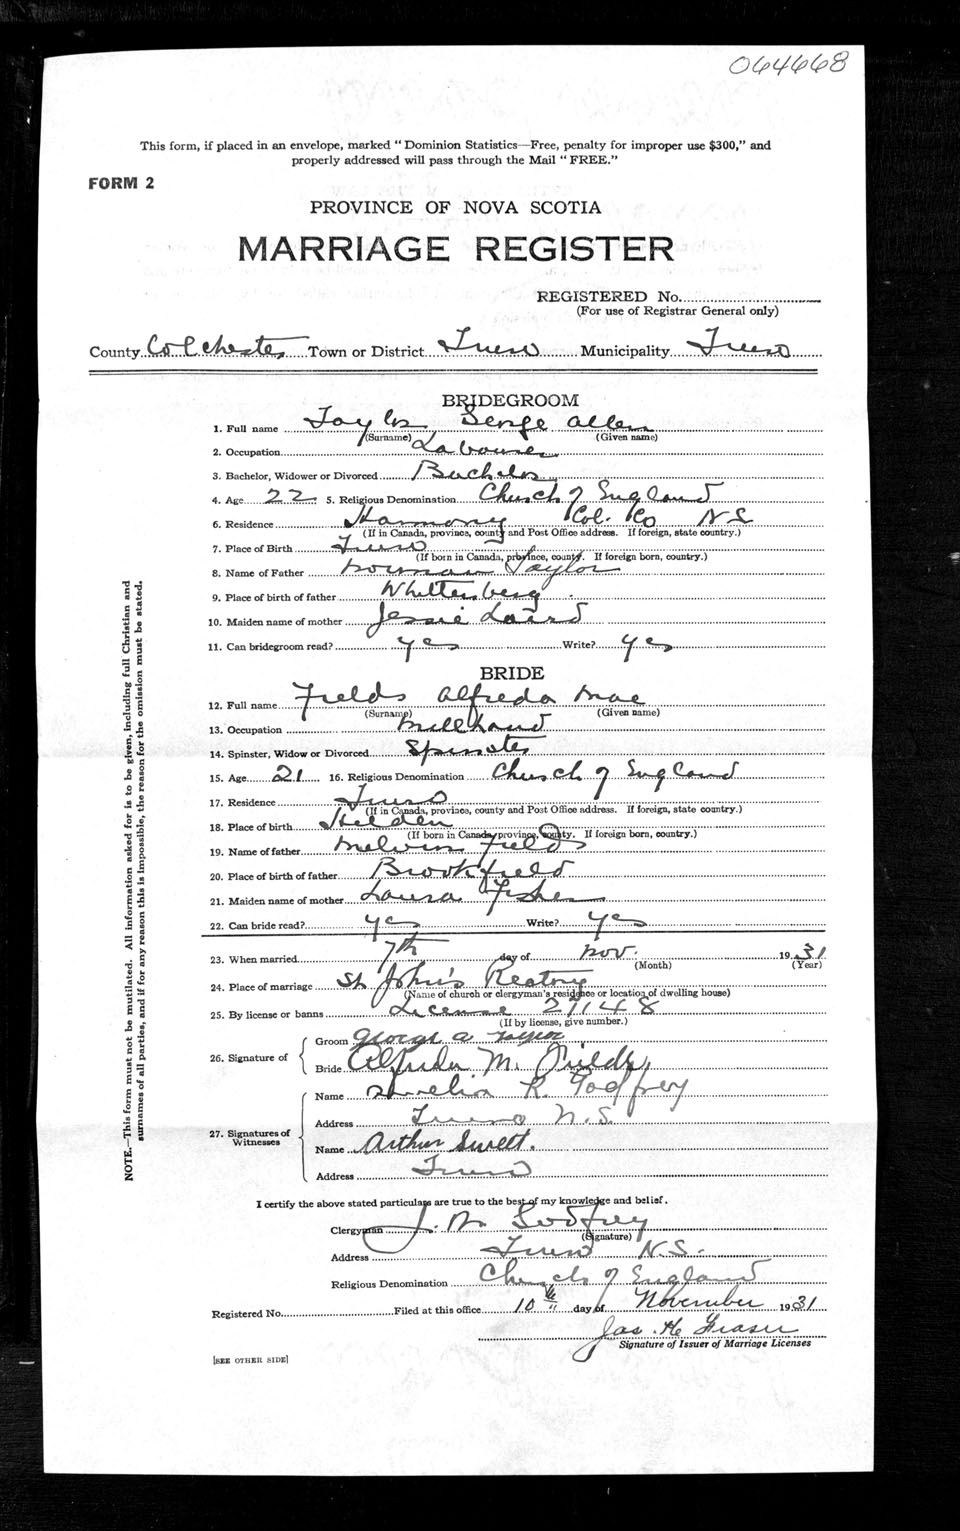 064668
This form, if placed in an envelope, marked "Dominion Statistics—Free, penalty for improper use $300," and
properly addressed will pass through the Mail "FREE."
FORM 2
PROVINCE OF NOVA SCOTIA
MARRIAGE REGISTER
REGISTERED No.
(For use of Registrar General only)
County Colchester Town or District Truro Municipality Truro
BRIDEGROOM
1. Full name Taylor George Allen
(Surname) (Given name)
2. Occupation Labourer
3. Bachelor, Widower or Divorced Bachelor
4. Age 22 5. Religious Denomination Church of England
6. Residence Harmony Col. Co NS
(If in Canada, province, county and Post Office address. If foreign, state country.)
7. Place of Birth Truro
(If born in Canada, province, county. If foreign born, country.)
8. Name of Father Norman Taylor
9. Place of birth of father
10. Maiden name of mother Jessie Laird
11. Can bridegroom read? yes Write? yes
BRIDE
12. Full name Fields Alfreda Mae
(Surname) (Given name)
13. Occupation Millhand
14. Spinster, Widow or Divorced Spinster
15. Age 21 16. Religious Denomination Church of England
17. Residence Truro
(If in Canada, province, county and Post Office address. If foreign, state country.)
18. Place of birth Hilden
(If born in Canada, province, county. If foreign born, country.)
19. Name of father Melvin Fields
20. Place of birth of father Brookfield
21. Maiden name of mother Laura Fisher
22. Can bride read? yes Write? yes
23. When married 7th day of Nov. 1931
(Month) (Year)
24. Place of marriage St John's Rectory
(Name of church or clergyman's residence or location of dwelling house)
25. By license or banns License 27148
(If by license, give number.)
26. Signature of
Groom George A Taylor
Bride Alfreda M. Fields
27. Signatures of Witnesses
Name R. Godfrey
Address Truro N.S.
Name Arthur Swett.
Address Truro
I certify the above stated particulars are true to the best of my knowledge and belief.
Clergyman J. W. Godfrey
(Signature)
Address Truro N.S.
Religious Denomination Church of England
Registered No. Filed at this office 10th day of November 1931
Jas. H. Fraser
Signature of Issuer of Marriage Licenses
[SEE OTHER SIDE]
NOTE.—This form must not be mutilated. All information asked for is to be given, including full Christian and
surnames of all parties, and if for any reason this is impossible, the reason for the omission must be stated.